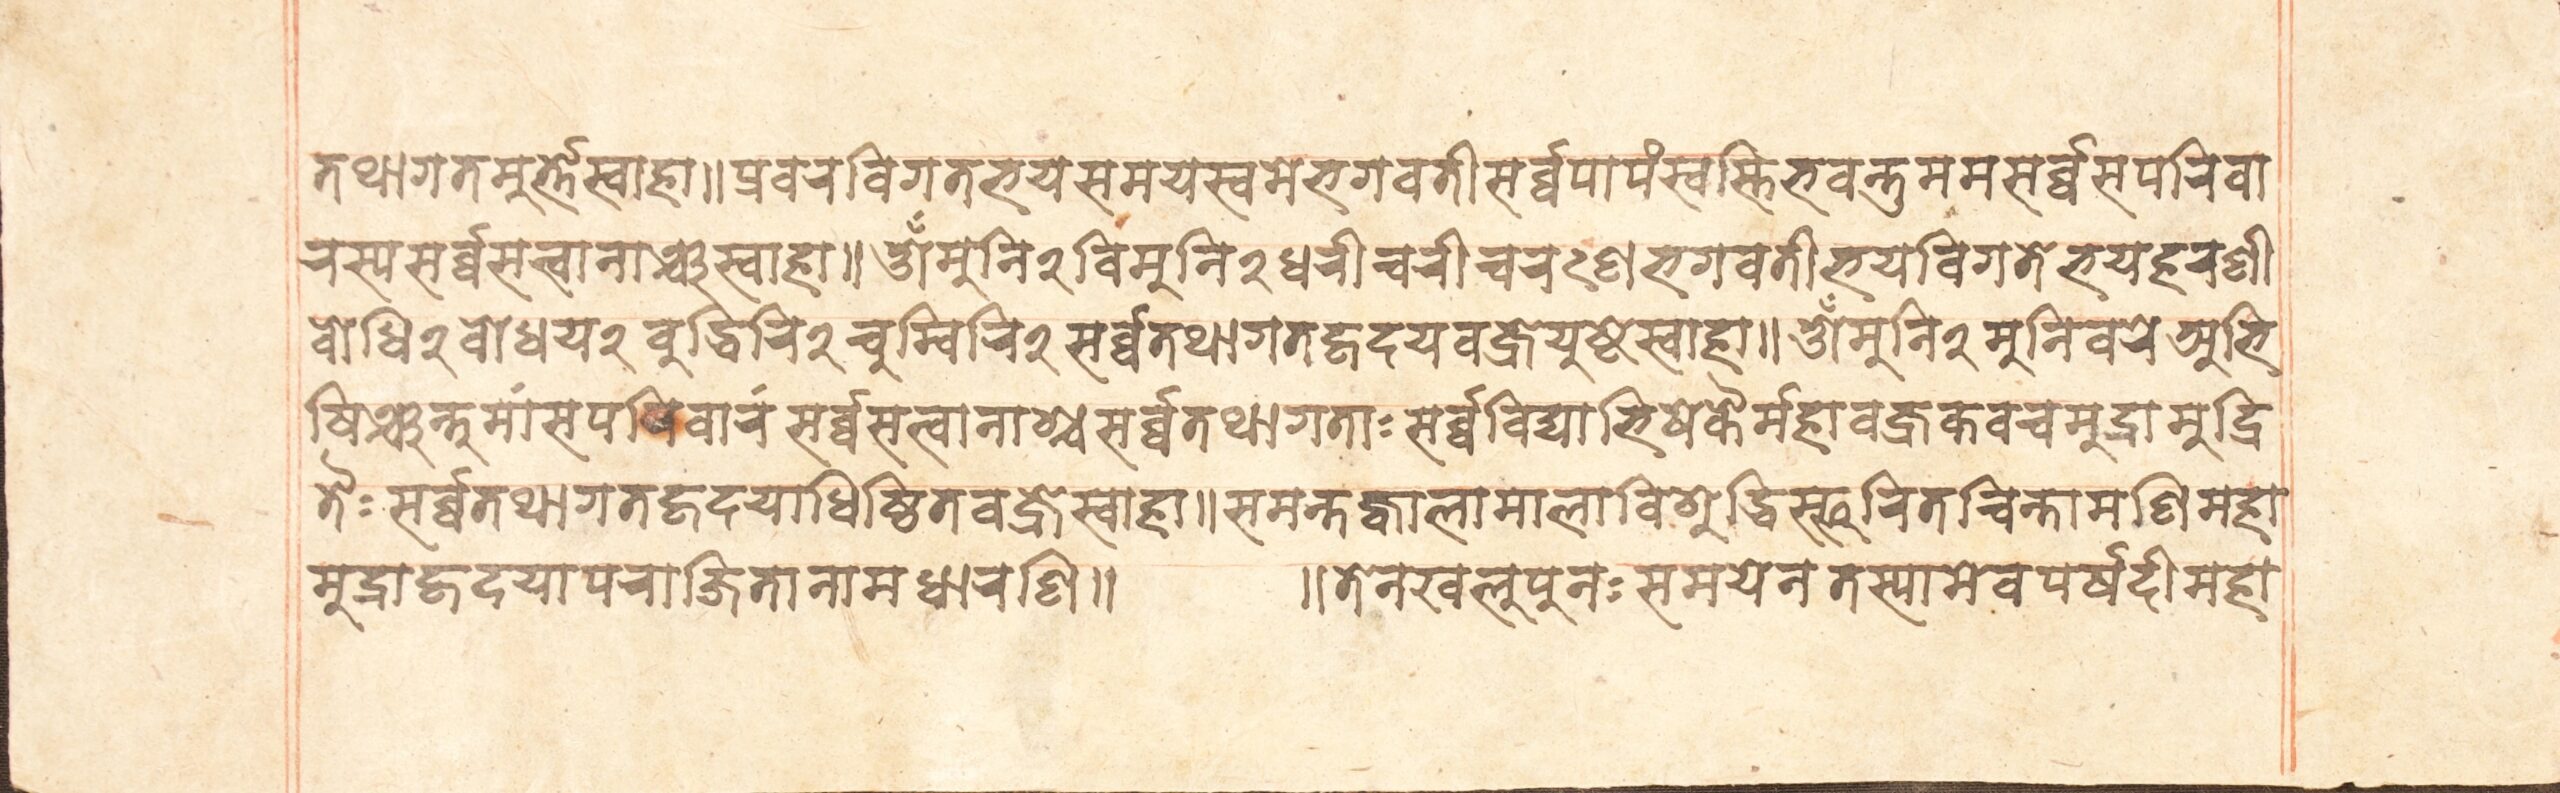 तथागतमुर्त्तेस्वाहा॥प्रवरविगतभयसमयस्वमेभगवतीसर्व्वपापंस्वस्तिभवन्तुममसर्व्वसपरिवा
रस्यसर्व्वसत्वानाञ्चस्वाहा॥ॐमुनि२विमुनि२धरीचरीचरणेभगवतीभयविगतेभयहरणी
बोधि२बोधय२बुद्धिरि२चुम्विरि२सर्व्वतथागतहृदयवज्रेयुष्टेस्वाहा॥ॐमुनि२मुनिवरेअभि
षिञ्चन्तुमांसपरिवारंसर्व्वसत्वानाञ्चसर्व्वतथागताःसर्व्वविद्याभिषेकैर्महावज्रकवचमुद्रामुद्रि
तैःसर्व्वतथागतहृदयाधिष्ठितवज्रेस्वाहा॥समन्तज्वालामालाविशुद्धिस्फुरितचिन्तामणिमहा
मुद्राहृदयापराजितानामधारणि॥ ॥तेनखलुपुनःसमयेनतस्यामेवपर्षदीमहा